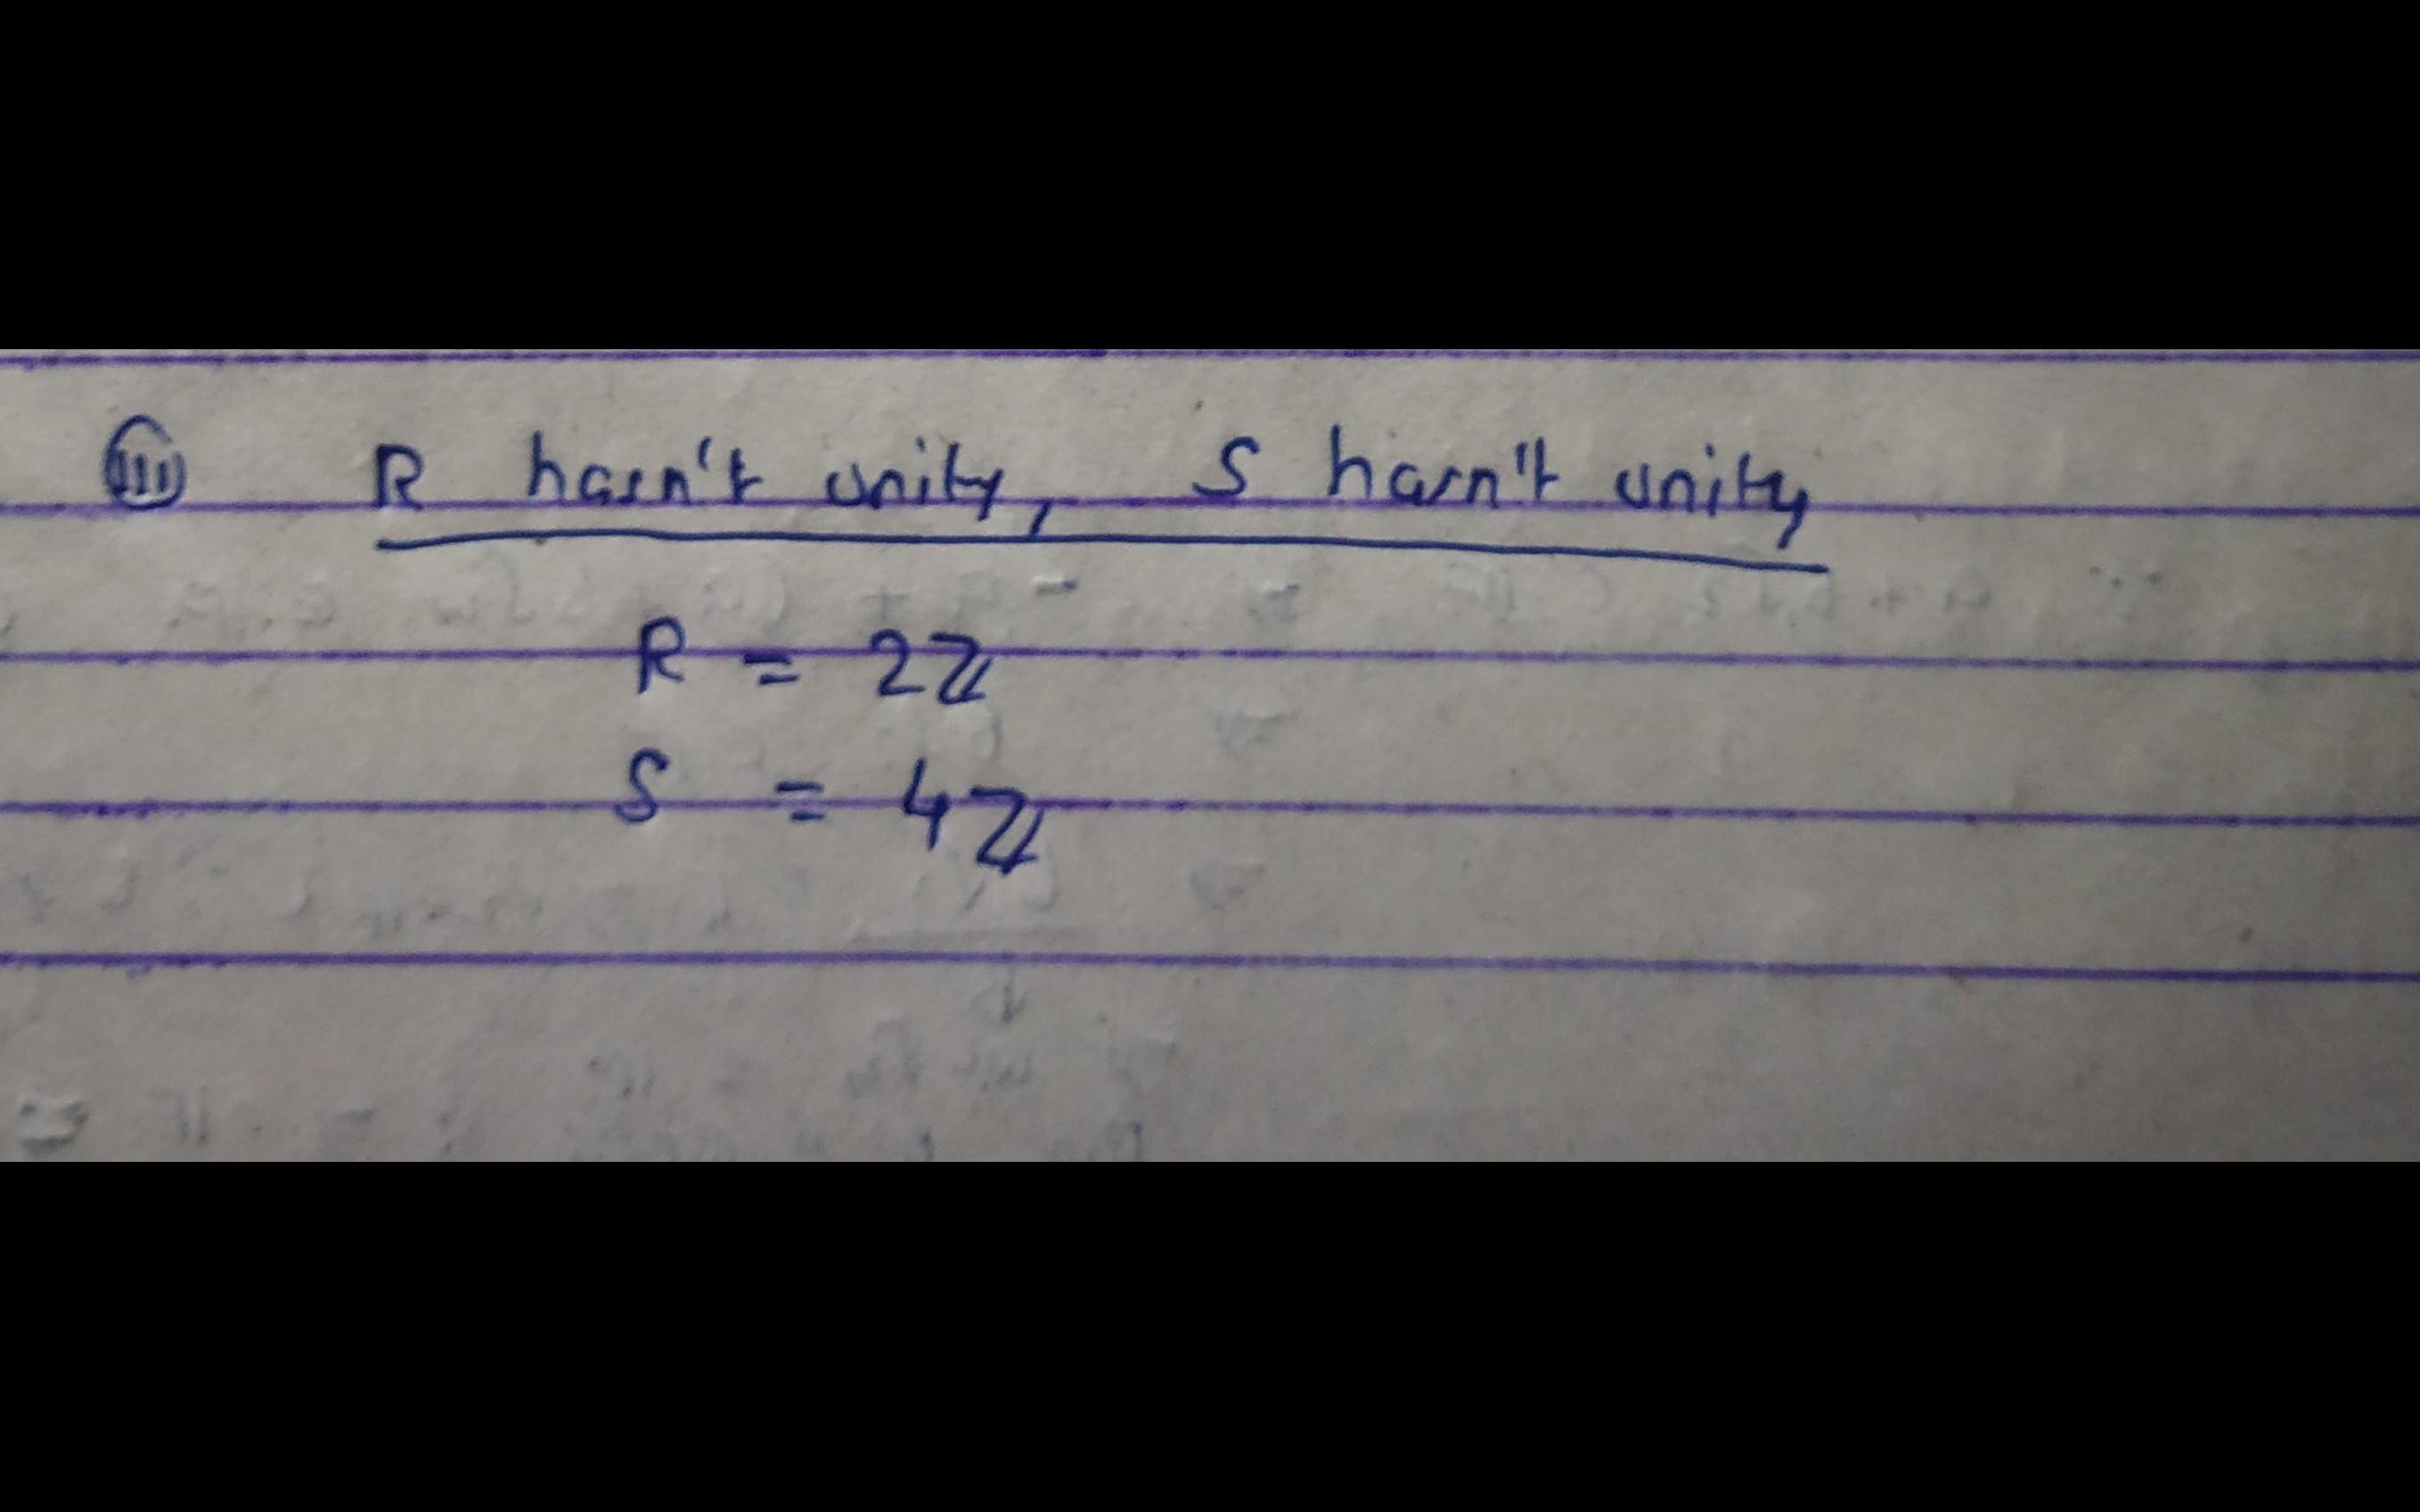 (iii) R hasn't unity, S hasn't unity
R = 2ℤ
S = 4ℤ